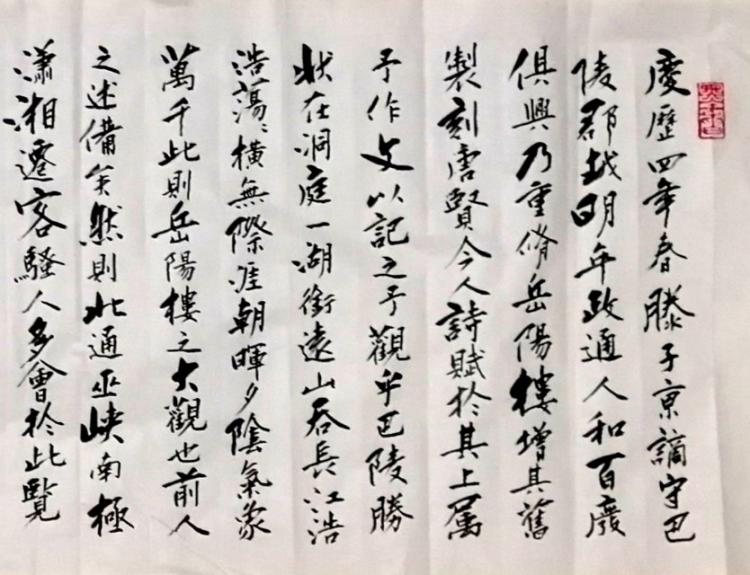 慶歷四年春滕子京謫守巴
陵郡越明年政通人和百廢
俱興乃重脩岳陽樓增其舊
製刻唐賢今人詩賦於其上属
予作文以記之予觀乎巴陵勝
狀在洞庭一湖銜遠山吞長江浩
浩蕩〻橫無際涯朝暉夕陰氣象
萬千此則岳陽樓之大觀也前人
之述備矣然則北通巫峽南極
瀟湘遷客騷人多會於此覽